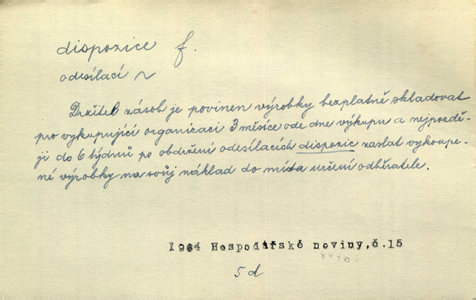 dispozice f.
odesílací ~
Držitel zásob je povinen výrobky bezplatně skladovat
pro vykupující organizaci 3 měsíce ode dne výkupu a nejpozdě-
ji do 6 týdnů po obdržení odesílacích dispozic zaslat vykoupe-
né výrobky na svůj náklad do místa určení odběratele.
1964 Hospodářské noviny,č.15
5d